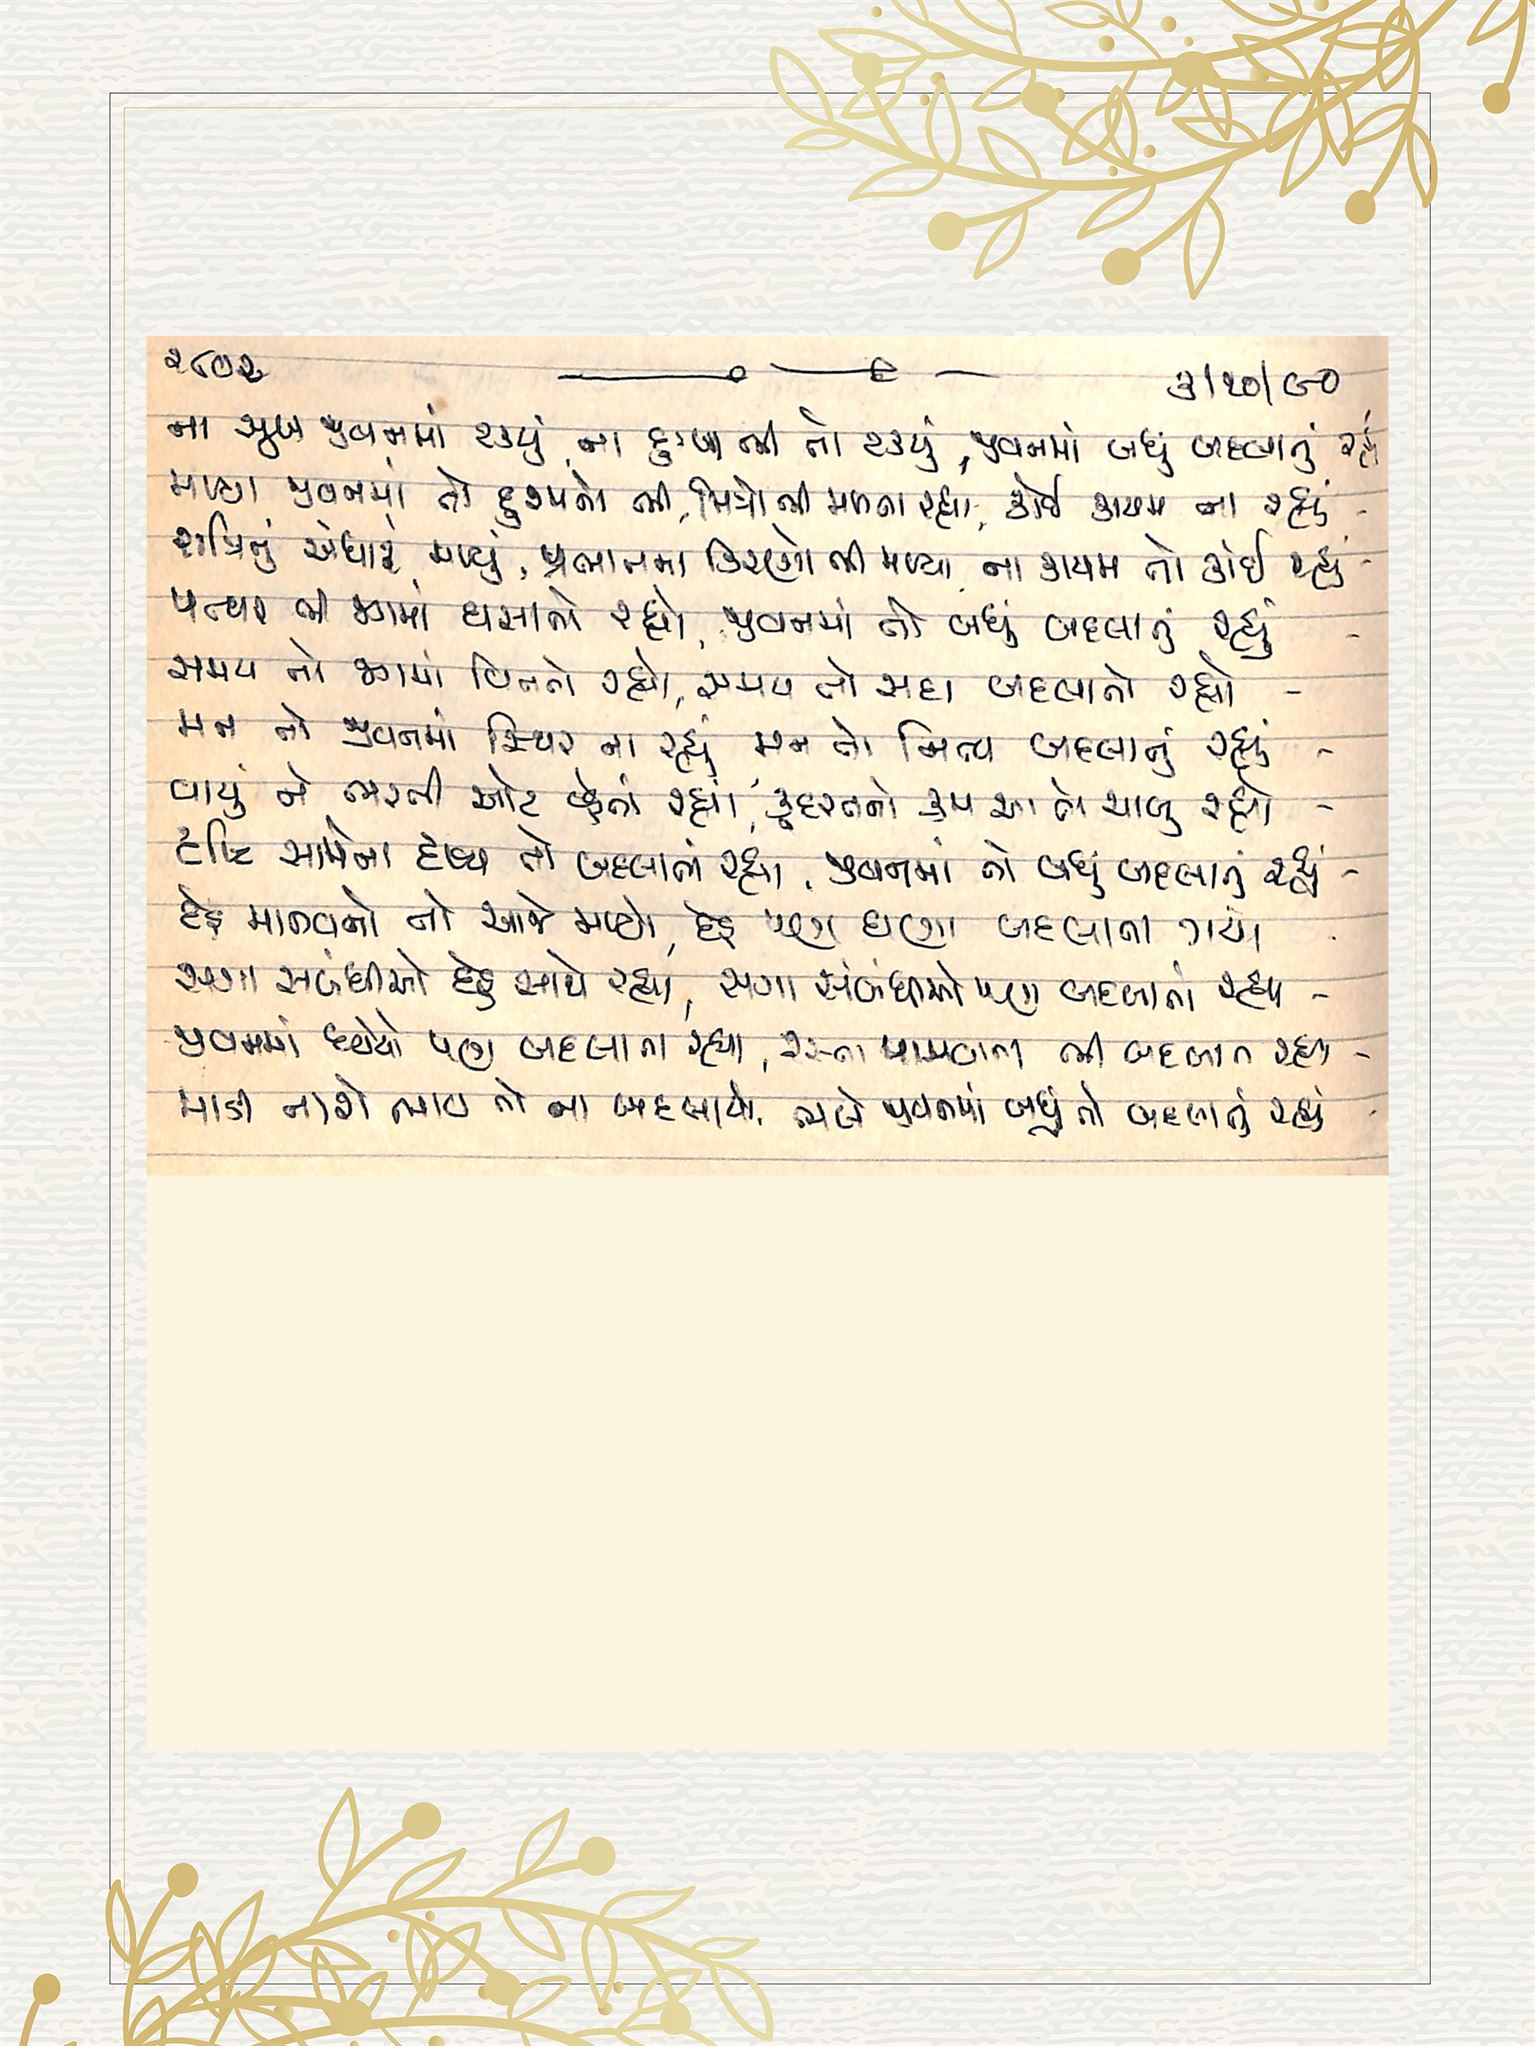 ૨૮૦૨ ૩/૧૦/૯૦
ના સુખ જીવનમાં ટક્યું, ના દુઃખ ભી તો ટક્યું, જીવનમાં બધું બદલાતું રહ્યું
મળ્યા જીવનમાં તો દુશ્મનો ભી, મિત્રો ભી મળતા રહ્યા, કોઈ કાયમ ના રહ્યું -
રાત્રિનું અંધારું મળ્યું, પ્રભાતના કિરણો ભી મળ્યા, ના કાયમ તો કોઈ રહ્યું -
પત્થર ભી જગમાં ઘસાતો રહ્યો, જીવનમાં તો બધું બદલાતું રહ્યું -
સમય તો જગમાં વિતતો રહ્યો, સમય તો સદા બદલાતો રહ્યો -
મન તો જીવનમાં સ્થિર ના રહ્યું, મન તો નિત્ય બદલાતું રહ્યું -
વાયું ને ભરતી ઓટ વ્હેતાં રહ્યાં, કુદરતનો ક્રમ આ તો ચાલુ રહ્યો -
દૃષ્ટિ સામેના દૃશ્ય તો બદલાતાં રહ્યા, જીવનમાં તો બધું બદલાતું રહ્યું -
દેહ માનવનો તો આજે મળ્યો, દેહ પણ ઘણા બદલાતા ગયા -
સગા સબંધીઓ દેહ સાથે રહ્યા, સગા સંબંધીઓ પણ બદલાતાં રહ્યા -
જીવનમાં ધ્યેયો પણ બદલાતા રહ્યા, રસ્તા પામવાના ભી બદલાતા રહ્યા -
માડી તારો ભાવ તો ના બદલાયો, ભલે જીવનમાં બધું તો બદલાતું રહ્યું -